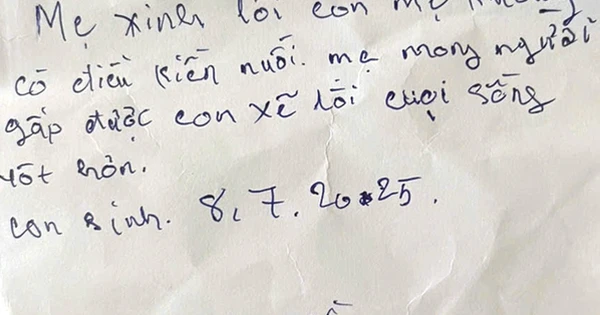 Mẹ xinh lỗi con mẹ
có điều kiền nuôi. mẹ mong người
gấp được con xẽ lỗi cuội sống
tốt hơn.
con sinh. 8, 7. 20.25.